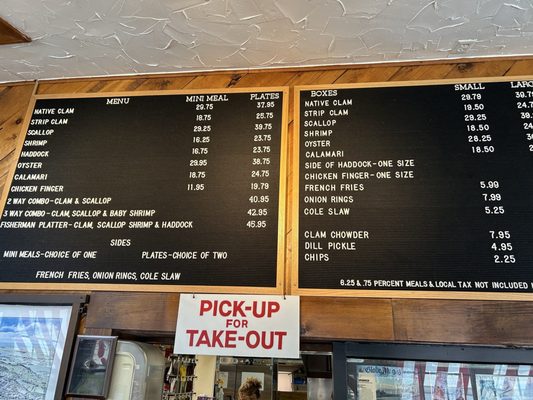 MENU MINI MEAL PLATES
NATIVE CLAM 29.75 37.95
STRIP CLAM 18.75 25.75
SCALLOP 29.25 39.75
SHRIMP 16.25 23.75
HADDOCK 16.75 23.75
OYSTER 29.95 38.75
CALAMARI 18.75 24.75
CHICKEN FINGER 11.95 19.79
2 WAY COMBO-CLAM & SCALLOP 40.95
3 WAY COMBO- CLAM, SCALLOP & BABY SHRIMP 42.95
FISHERMAN PLATTER- CLAM, SCALLOP SHRIMP & HADDOCK 45.95
SIDES
MINI MEALS-CHOICE OF ONE PLATES-CHOICE OF TWO
FRENCH FRIES, ONION RINGS, COLE SLAW
BOXES SMALL
NATIVE CLAM 29.79
STRIP CLAM 19.50
SCALLOP 29.25
SHRIMP 18.50
OYSTER 28.25
CALAMARI 18.50
SIDE OF HADDOCK-ONE SIZE
CHICKEN FINGER-ONE SIZE
FRENCH FRIES 5.99
ONION RINGS 7.99
COLE SLAW 5.25
CLAM CHOWDER 7.95
DILL PICKLE 4.95
CHIPS 2.25
6.25 & .75 PERCENT MEALS & LOCAL TAX NOT INCLUDED
PICK-UP
FOR
TAKE-OUT